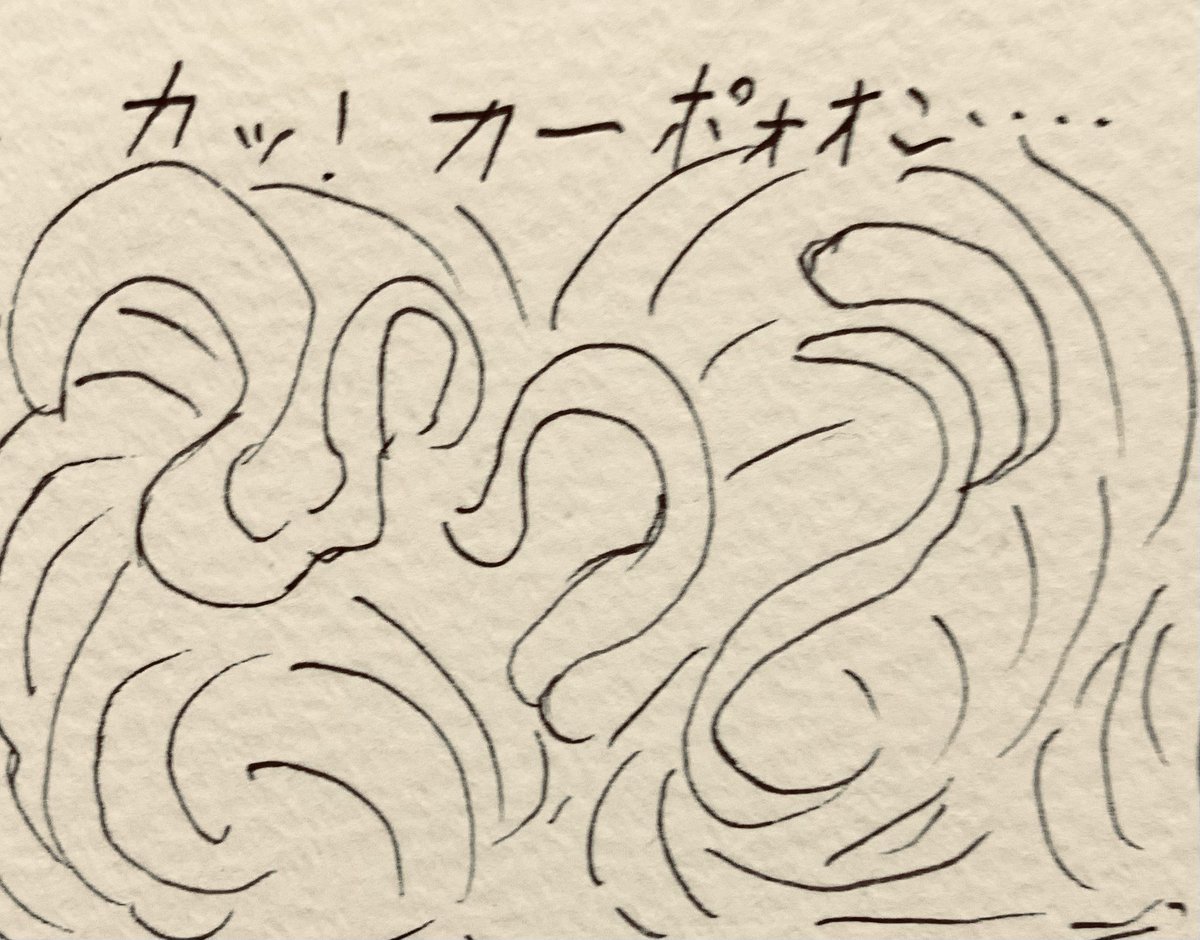 カッ! カーポォオン・・・・・